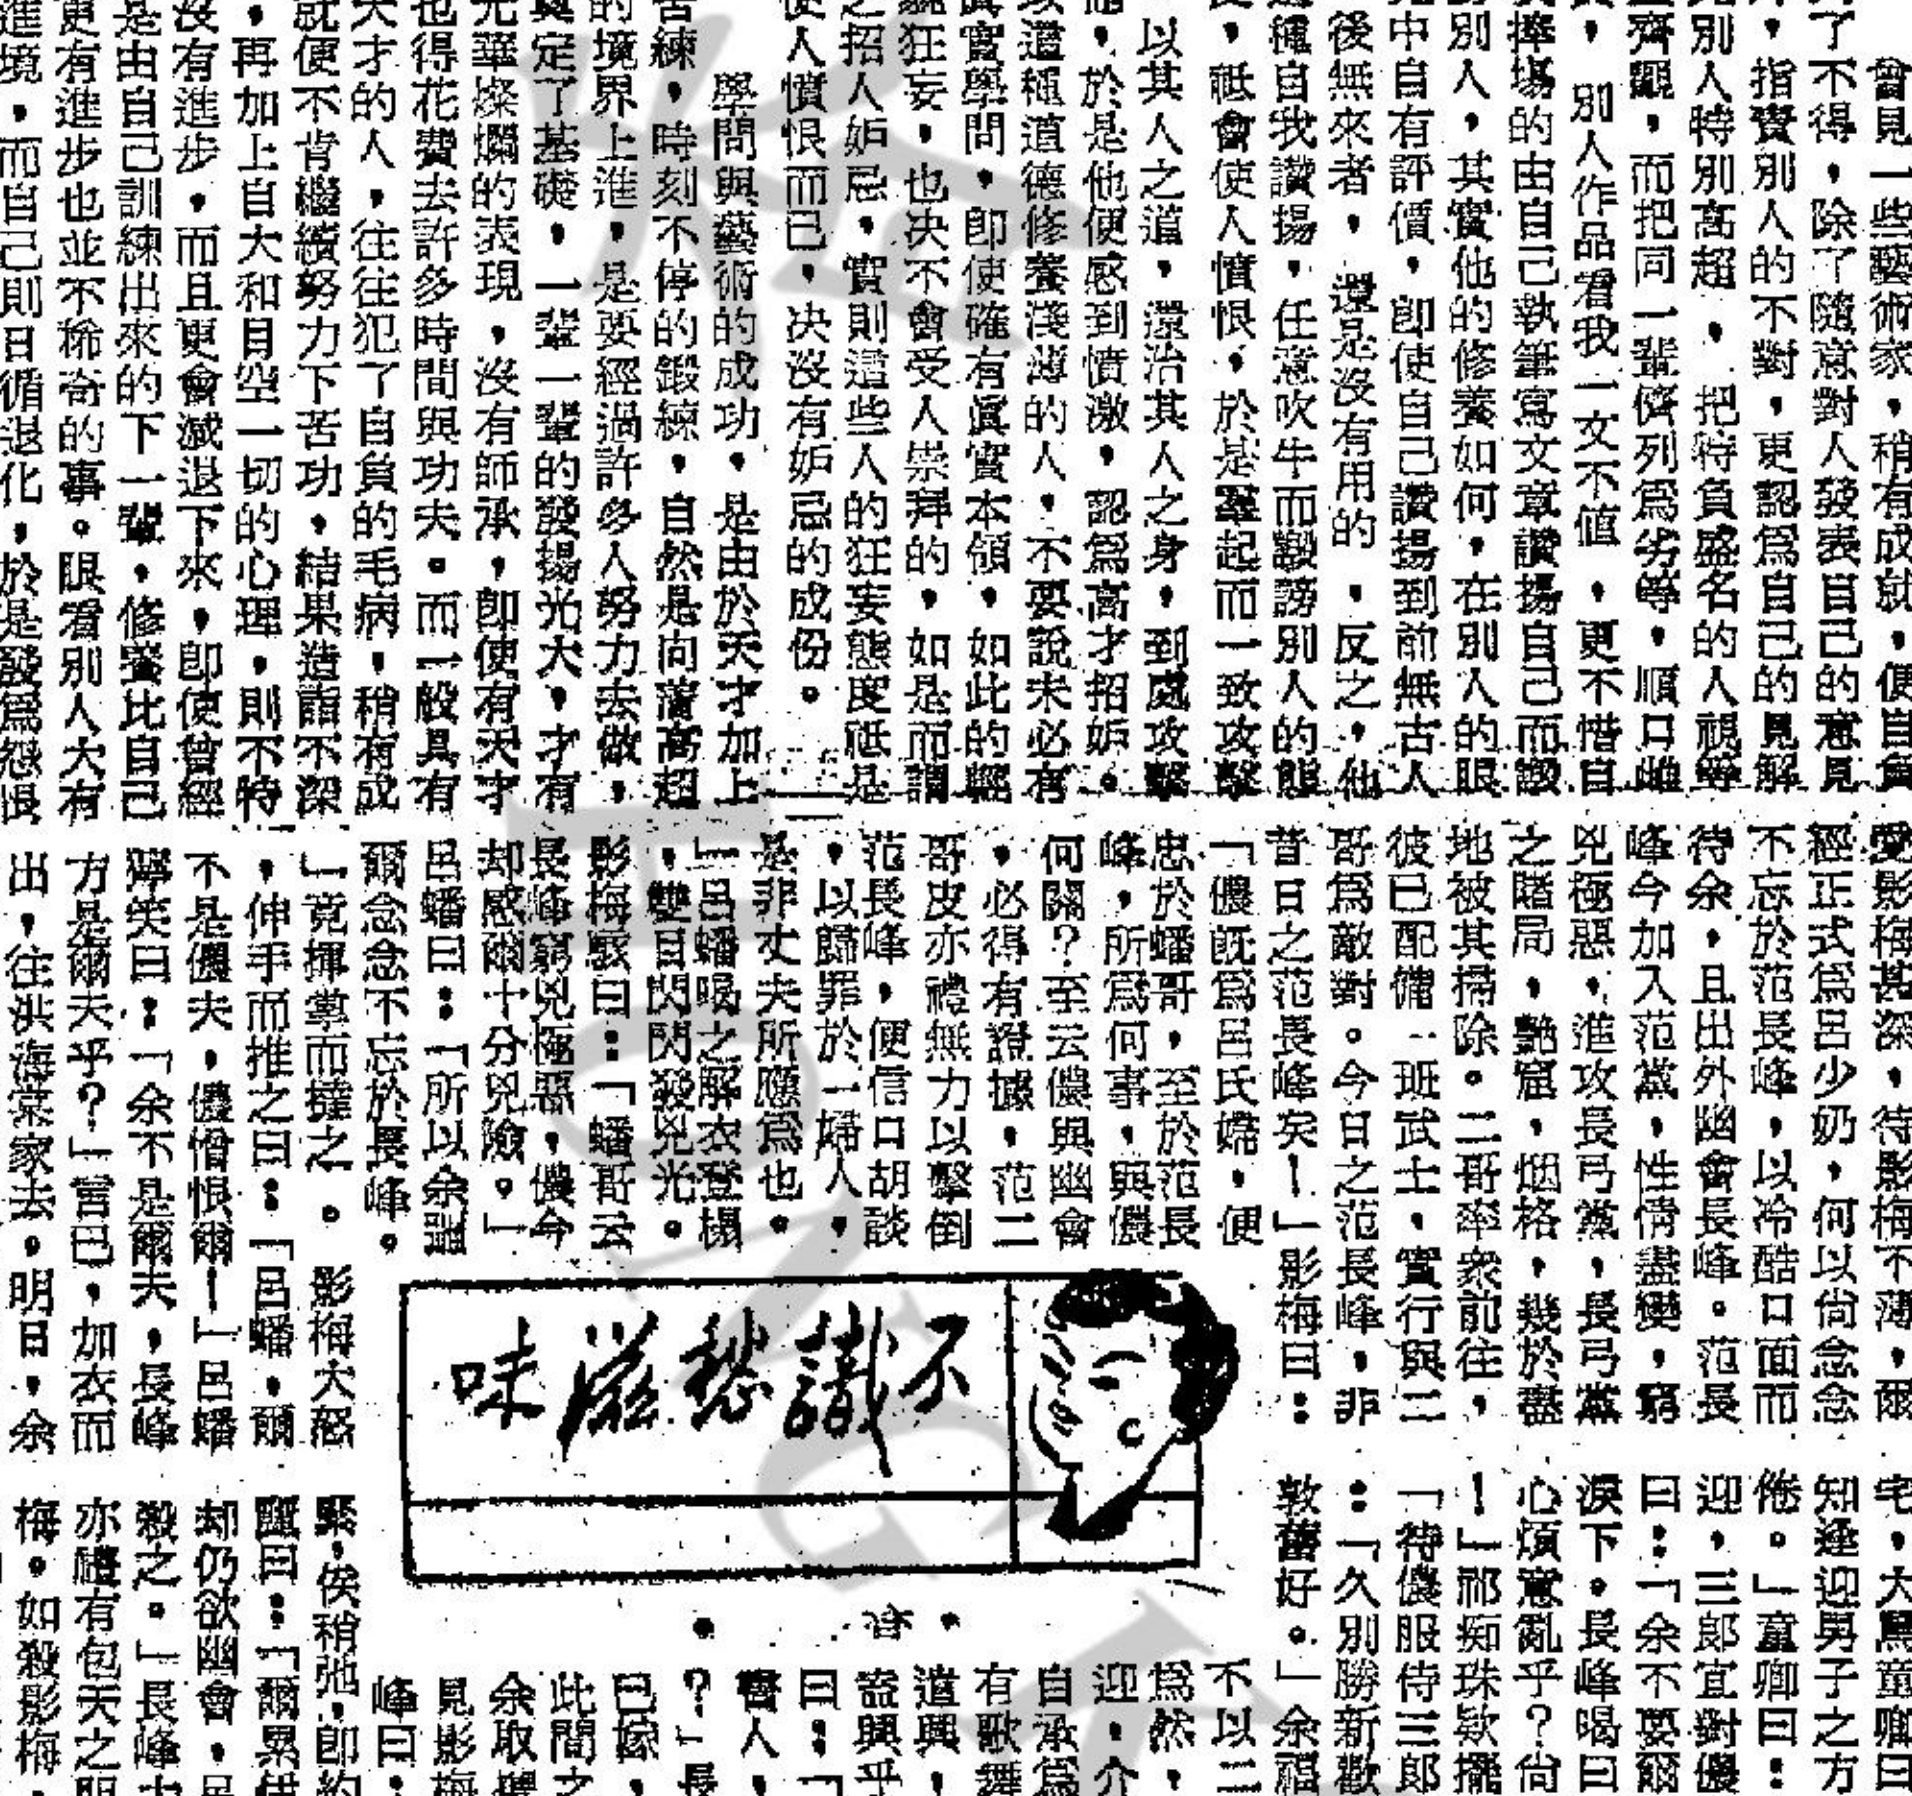 會見一些藝術家，稍有成就，便自負
了不得，除了隨意對人發表自己的意見
，指責別人的不對，更認爲自己的見解
別人特別高超，把特負盛名的人視等
齊觀，而把同一輩儕列爲劣等，順口雌
，別人作品看我一文不值，更不惜自
捧塲的由自己執筆寫文章讚揚自己而譭
別人，其實他的修養如何，在別人的眼
中自有評價，即使自己讚揚到前無古人
後無來者，還是沒有用的，反之，他
種自我讚揚，任意吹牛而譭謗別人的態
，祇會使人憤恨，於是羣起而一致攻擊
以其人之道，還治其人之身，到處攻擊
，於是他便感到憤激，認爲高才招妒。
這種道德修養淺薄的人，不要說未必有
眞實學問，即使確有眞實本領，如此的輕
狂妄，也决不會受人崇拜的，如是而謂
之招人妒忌，實則這些人的狂妄態度祇是
使人憤恨而已，决沒有妒忌的成份。
學問與藝術的成功，是由於天才加上
苦練，時刻不停的鍛練，自然是向著高超
的境界上進，是要經過許多人努力去做，
奠定了基礎，一輩一輩的發揚光大，才有
光華燦爛的表現，沒有師承，即使有天才
也得花費去許多時間與功夫。而一般具有
天才的人，往往犯了自負的毛病，稍有成
就便不肯繼續努力下苦功，結果造詣不深
，再加上自大和目空一切的心理，則不特
沒有進步，而且更會減退下來，即使曾經
是由自己訓練出來的下一輩，修養比自己
更有進步也並不稀奇的事。眼看別人大有
進境，而自己則日循退化，於是發爲怨恨
愛影梅甚深，待影梅不薄，爾
經正式爲呂少奶，何以尙念念
不忘於范長峰，以冷酷口面而
待余，且出外幽會長峰。范長
峰今加入范黨，性情盡變，窮
兇極惡，進攻長弓黨，長弓黨
之賭局，艷窟，烟格，幾於盡
地被其掃除。二哥率衆前往，
彼已配備一班武士，實行與二
哥爲敵對。今日之范長峰，非
昔日之范長峰矣！」影梅曰：
「儂旣爲呂氏婦，便
忠於蟠哥，至於范長
峰，所爲何事，與儂
何關？至云儂與幽會
，必得有證據，范二
哥皮亦禮無力以擊倒
范長峰，便信口胡談
，以歸罪於一婦人，
是非丈夫所應爲也。
」呂蟠喝之解衣登榻
，雙目閃閃發兇光。
影梅駭曰：「蟠哥云
長峰窮兇極惡，儂今
却感爾十分兇險。」
呂蟠曰：「所以余謂
爾念念不忘於長峰。
」竟揮掌而撻之。影梅大怒
，伸手而推之曰：「呂蟠，爾
不是儂夫，儂憎恨爾！」呂蟠
獰笑曰：「余不是爾夫，長峰
方是爾夫乎？」言已，加衣而
出，往洪海棠家去。明日，余
不識愁滋味
宅，大罵童卿曰
知逢迎男子之方
倦。」童卿曰：
迎，三郞宜對儂
曰：「余不要爾
淚下。長峰喝曰
心煩意亂乎？尙
！」祁痴珠欵擺
「待儂服侍三郞
：「久別勝新歡
敦舊好。」余福
不以二
爲然，
迎，介
自承爲
有歌舞
遣興，
盍興乎
曰：「
？」長
已嫁，
此間之
余取
見影梅
峰曰：
緊，俟稍弛，即約
曰：「爾累
却仍欲幽會，呂
殺之。」長峰
亦禮有包天之胆
梅。如殺影梅，